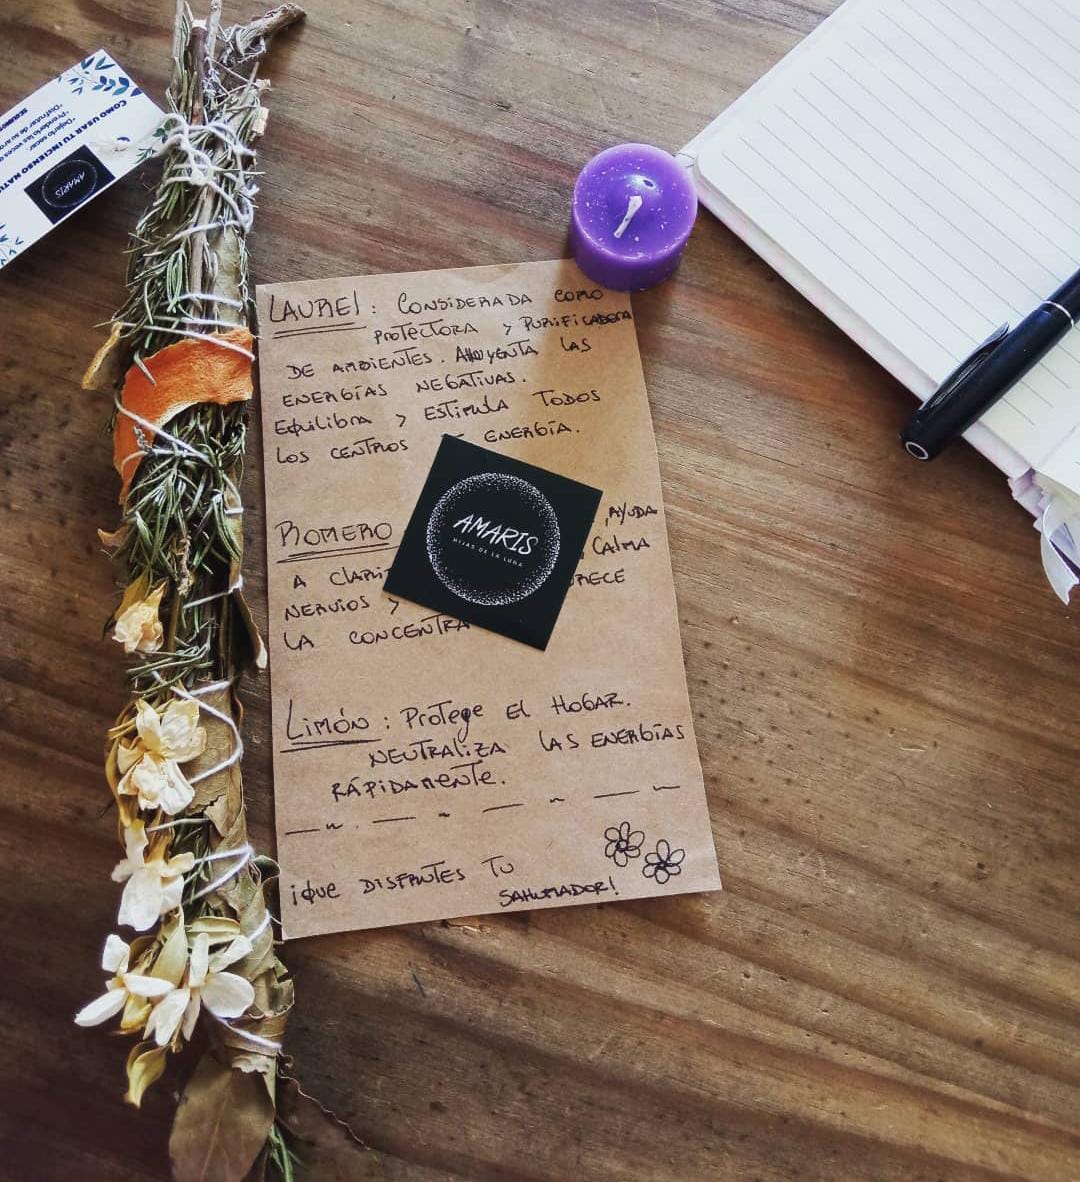 COMO USAR TU INCIENSO NATU
*Dejarlo secar.
*Prenderlo las veces q
*Disfrutar de su aro
AMARIS
LAUREL: CONSIDERADA COMO
PROTECTORA Y PURIFICADORA
DE AMBIENTES. AHUYENTA LAS
ENERGÍAS NEGATIVAS.
EQUILIBRA Y ESTIMULA TODOS
LOS CENTROS ENERGÍA.
ROMERO , AYUDA
A CLARI , CALMA
NERVIOS Y RECE
LA CONCENTRA
AMARIS
HIJAS DE LA LUNA
LIMÓN: PROTEGE EL HOGAR.
NEUTRALIZA LAS ENERGÍAS
RÁPIDAMENTE.
¡QUE DISFRUTES TU
SAHUMADOR!